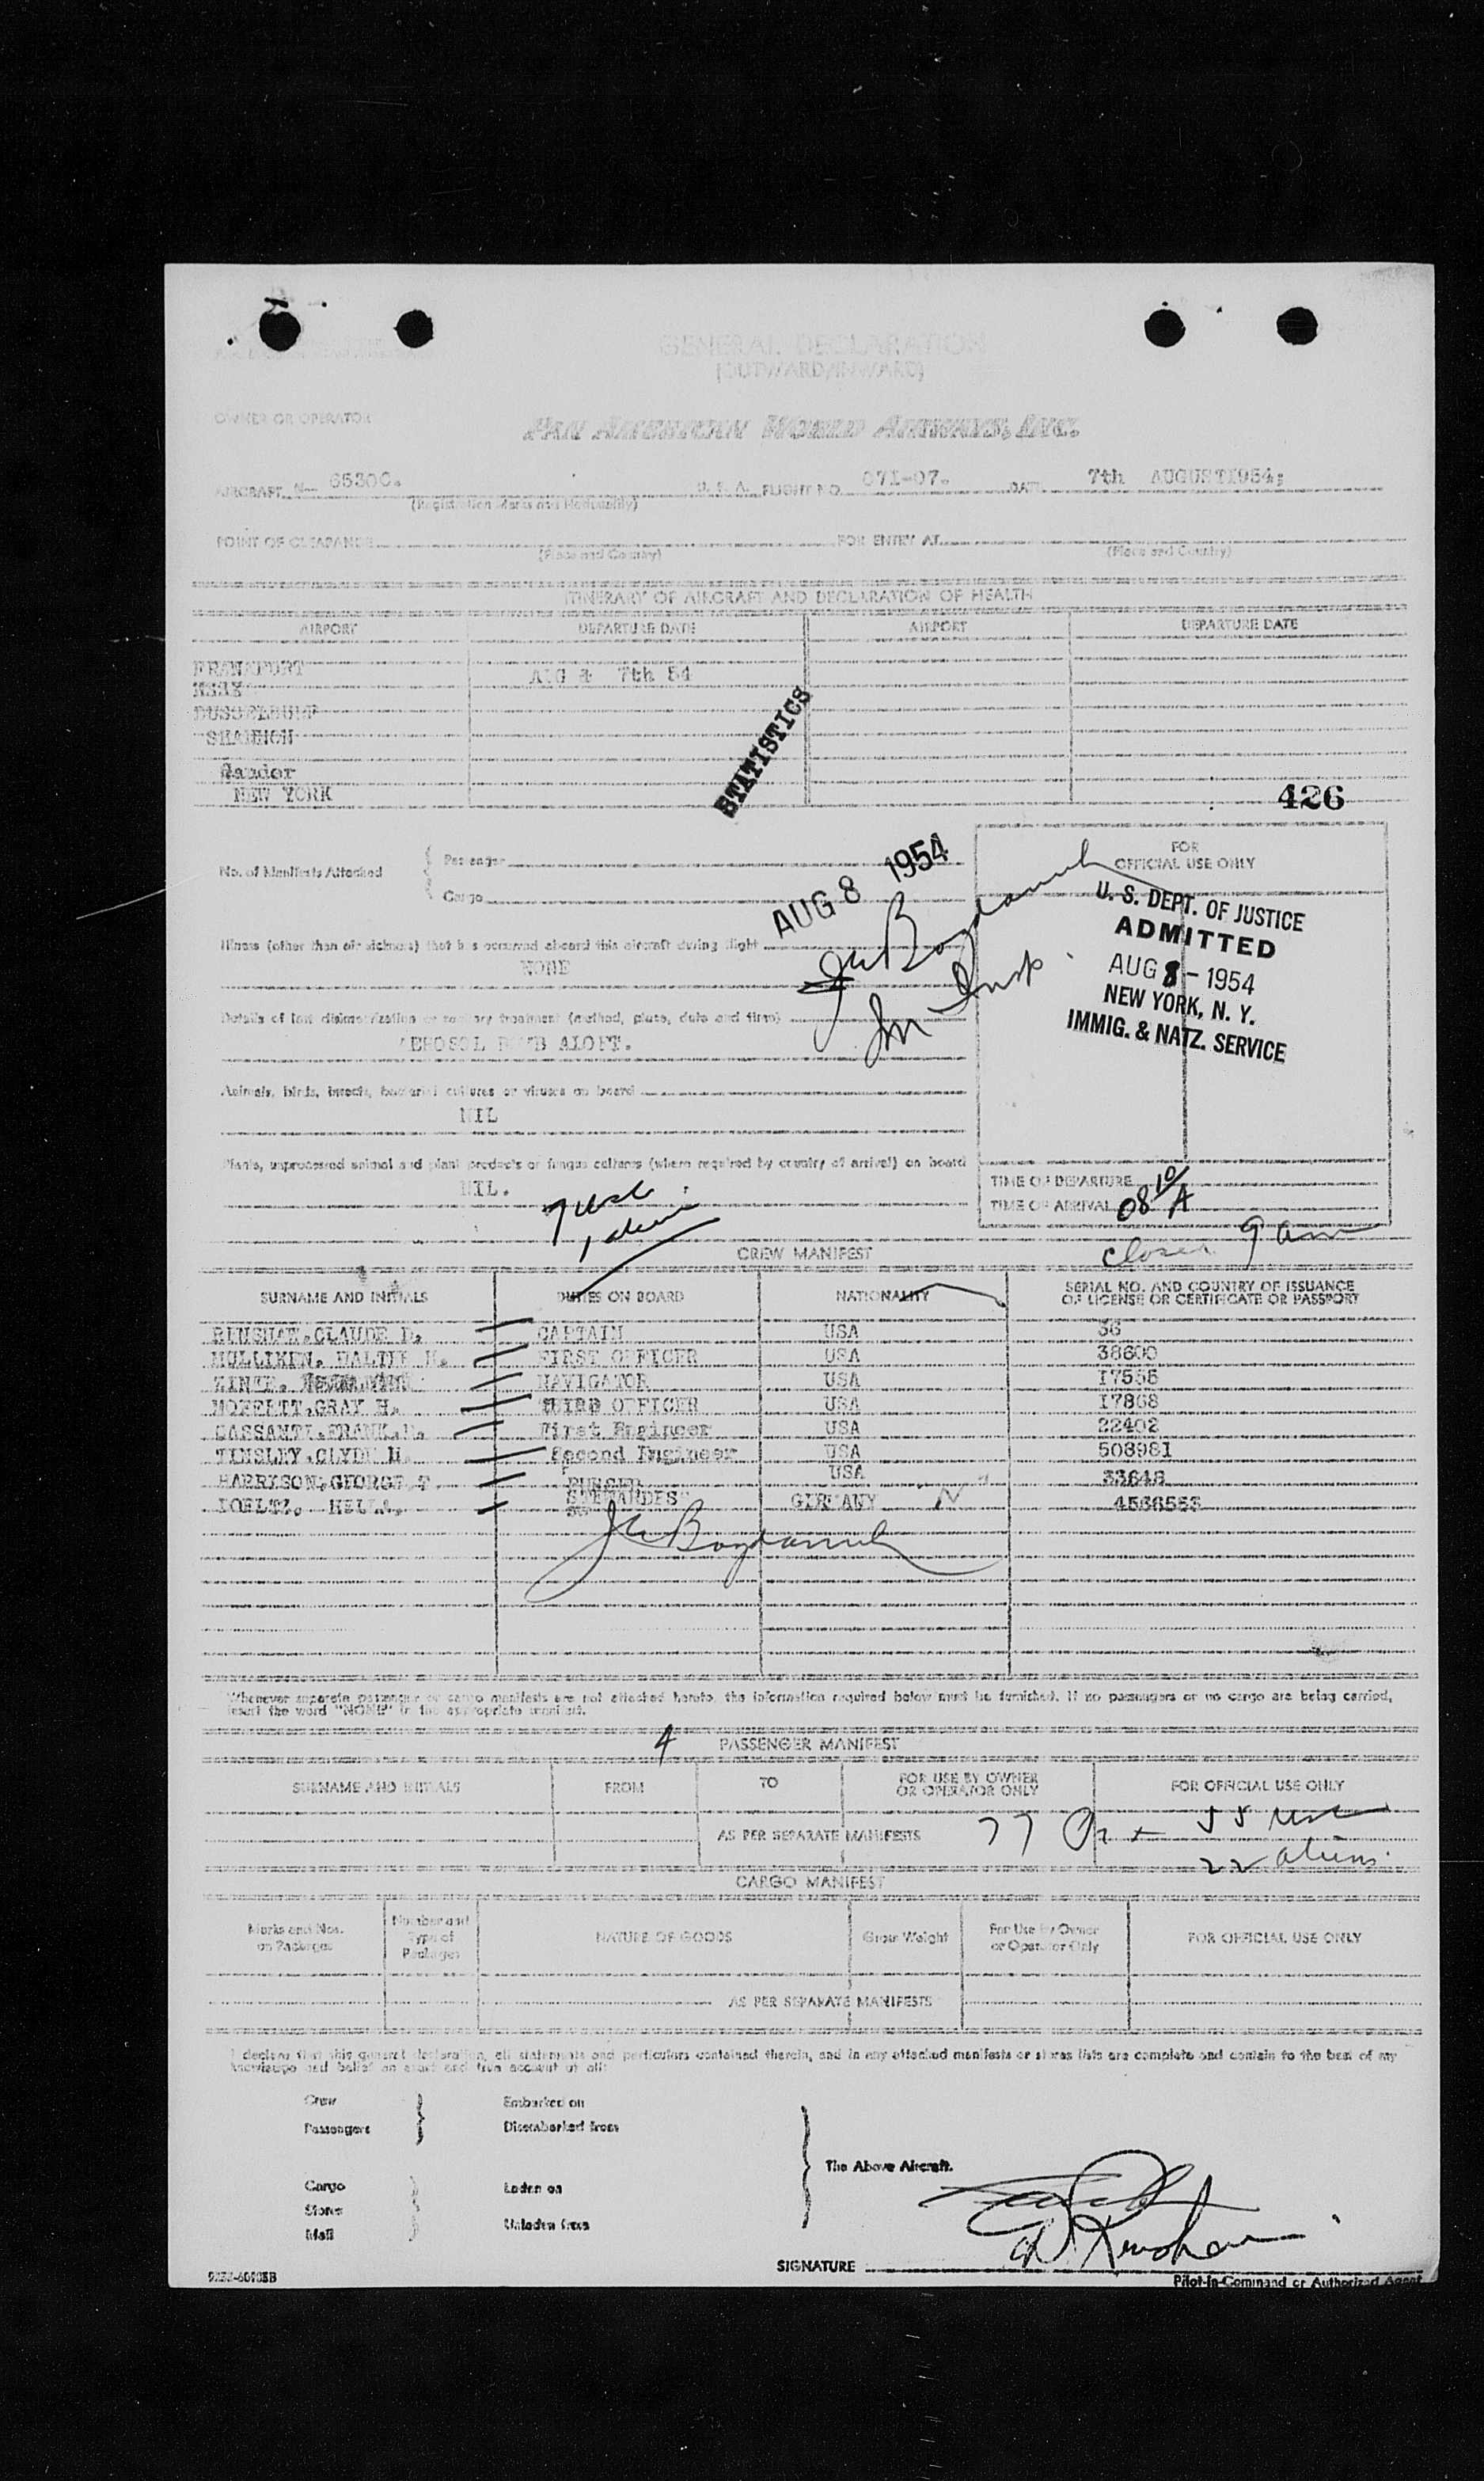 GENERAL DECLARATION
(OUTWARD/INWARD)
OWNER OR OPERATOR
PAN AMERICAN WORLD AIRWAYS, INC.
AIRCRAFT N— 65300. U. S. A. FLIGHT NO. 071-07. DATE 7th AUGUST1954;
(Registration Marks and Nationality)
POINT OF CLEARANCE FOR ENTRY AT
(Place and Country) (Place and Country)
ITINERARY OF AIRCRAFT AND DECLARATION OF HEALTH
AIRPORT DEPARTURE DATE AIRPORT DEPARTURE DATE
FRANKFORT AUG 7th 54
SHANNON
Gander
NEW YORK
STATISTICS
426
No. of Manifests Attached
Passenger
Cargo
AUG 8 1954
FOR
OFFICIAL USE ONLY
U. S. DEPT. OF JUSTICE
ADMITTED
AUG 8 - 1954
NEW YORK, N. Y.
IMMIG. & NATZ. SERVICE
Illness (other than air sickness) that has occurred aboard this aircraft during flight
NONE
Im Insp.
Details of last disinsectization or sanitary treatment (method, place, date and time)
AEROSOL BOMB ALOFT.
Animals, birds, insects, bacterial cultures or viruses on board
NIL
Plants, unprocessed animal and plant products or fungus cultures (where required by country of arrival) on board
NIL.
TIME OF DEPARTURE
TIME OF ARRIVAL 08 10/A
7 usc
1 alien
closed 9 am
CREW MANIFEST
SURNAME AND INITIALS DUTIES ON BOARD NATIONALITY SERIAL NO. AND COUNTRY OF ISSUANCE
OF LICENSE OR CERTIFICATE OR PASSPORT
CLAUDE CAPTAIN USA 36
MULLIKEN, WALTER H. FIRST OFFICER USA 38600
NAVIGATOR USA
MOFFETT, GRAY H. THIRD OFFICER USA 17868
FRANK First Engineer USA 22402
TINSLEY, CLYDE H. Second Engineer USA 508981
HARRISON, GEORGE T. PURSER USA 33648
STEWARDESS GERMANY N
Whenever separate passenger or cargo manifests are not attached hereto, the information required below must be furnished. If no passengers or no cargo are being carried,
insert the word "NONE" in the appropriate manifest.
4
PASSENGER MANIFEST
SURNAME AND INITIALS FROM TO FOR USE BY OWNER
OR OPERATOR ONLY FOR OFFICIAL USE ONLY
AS PER SEPARATE MANIFESTS 77 55 usc
22 aliens
CARGO MANIFEST
Marks and Nos.
on Packages Number and
Type of
Packages NATURE OF GOODS Gross Weight For Use by Owner
or Operator Only FOR OFFICIAL USE ONLY
AS PER SEPARATE MANIFESTS
I declare that this general declaration, all statements and particulars contained therein, and in any attached manifests or stores lists are complete and contain to the best of my
knowledge and belief an exact and true account of all:
Crew Embarked on
Passengers Disembarked from
The Above Aircraft.
Cargo Laden on
Stores
Mail Unladen from
SIGNATURE
Pilot-in-Command or Authorized Agent